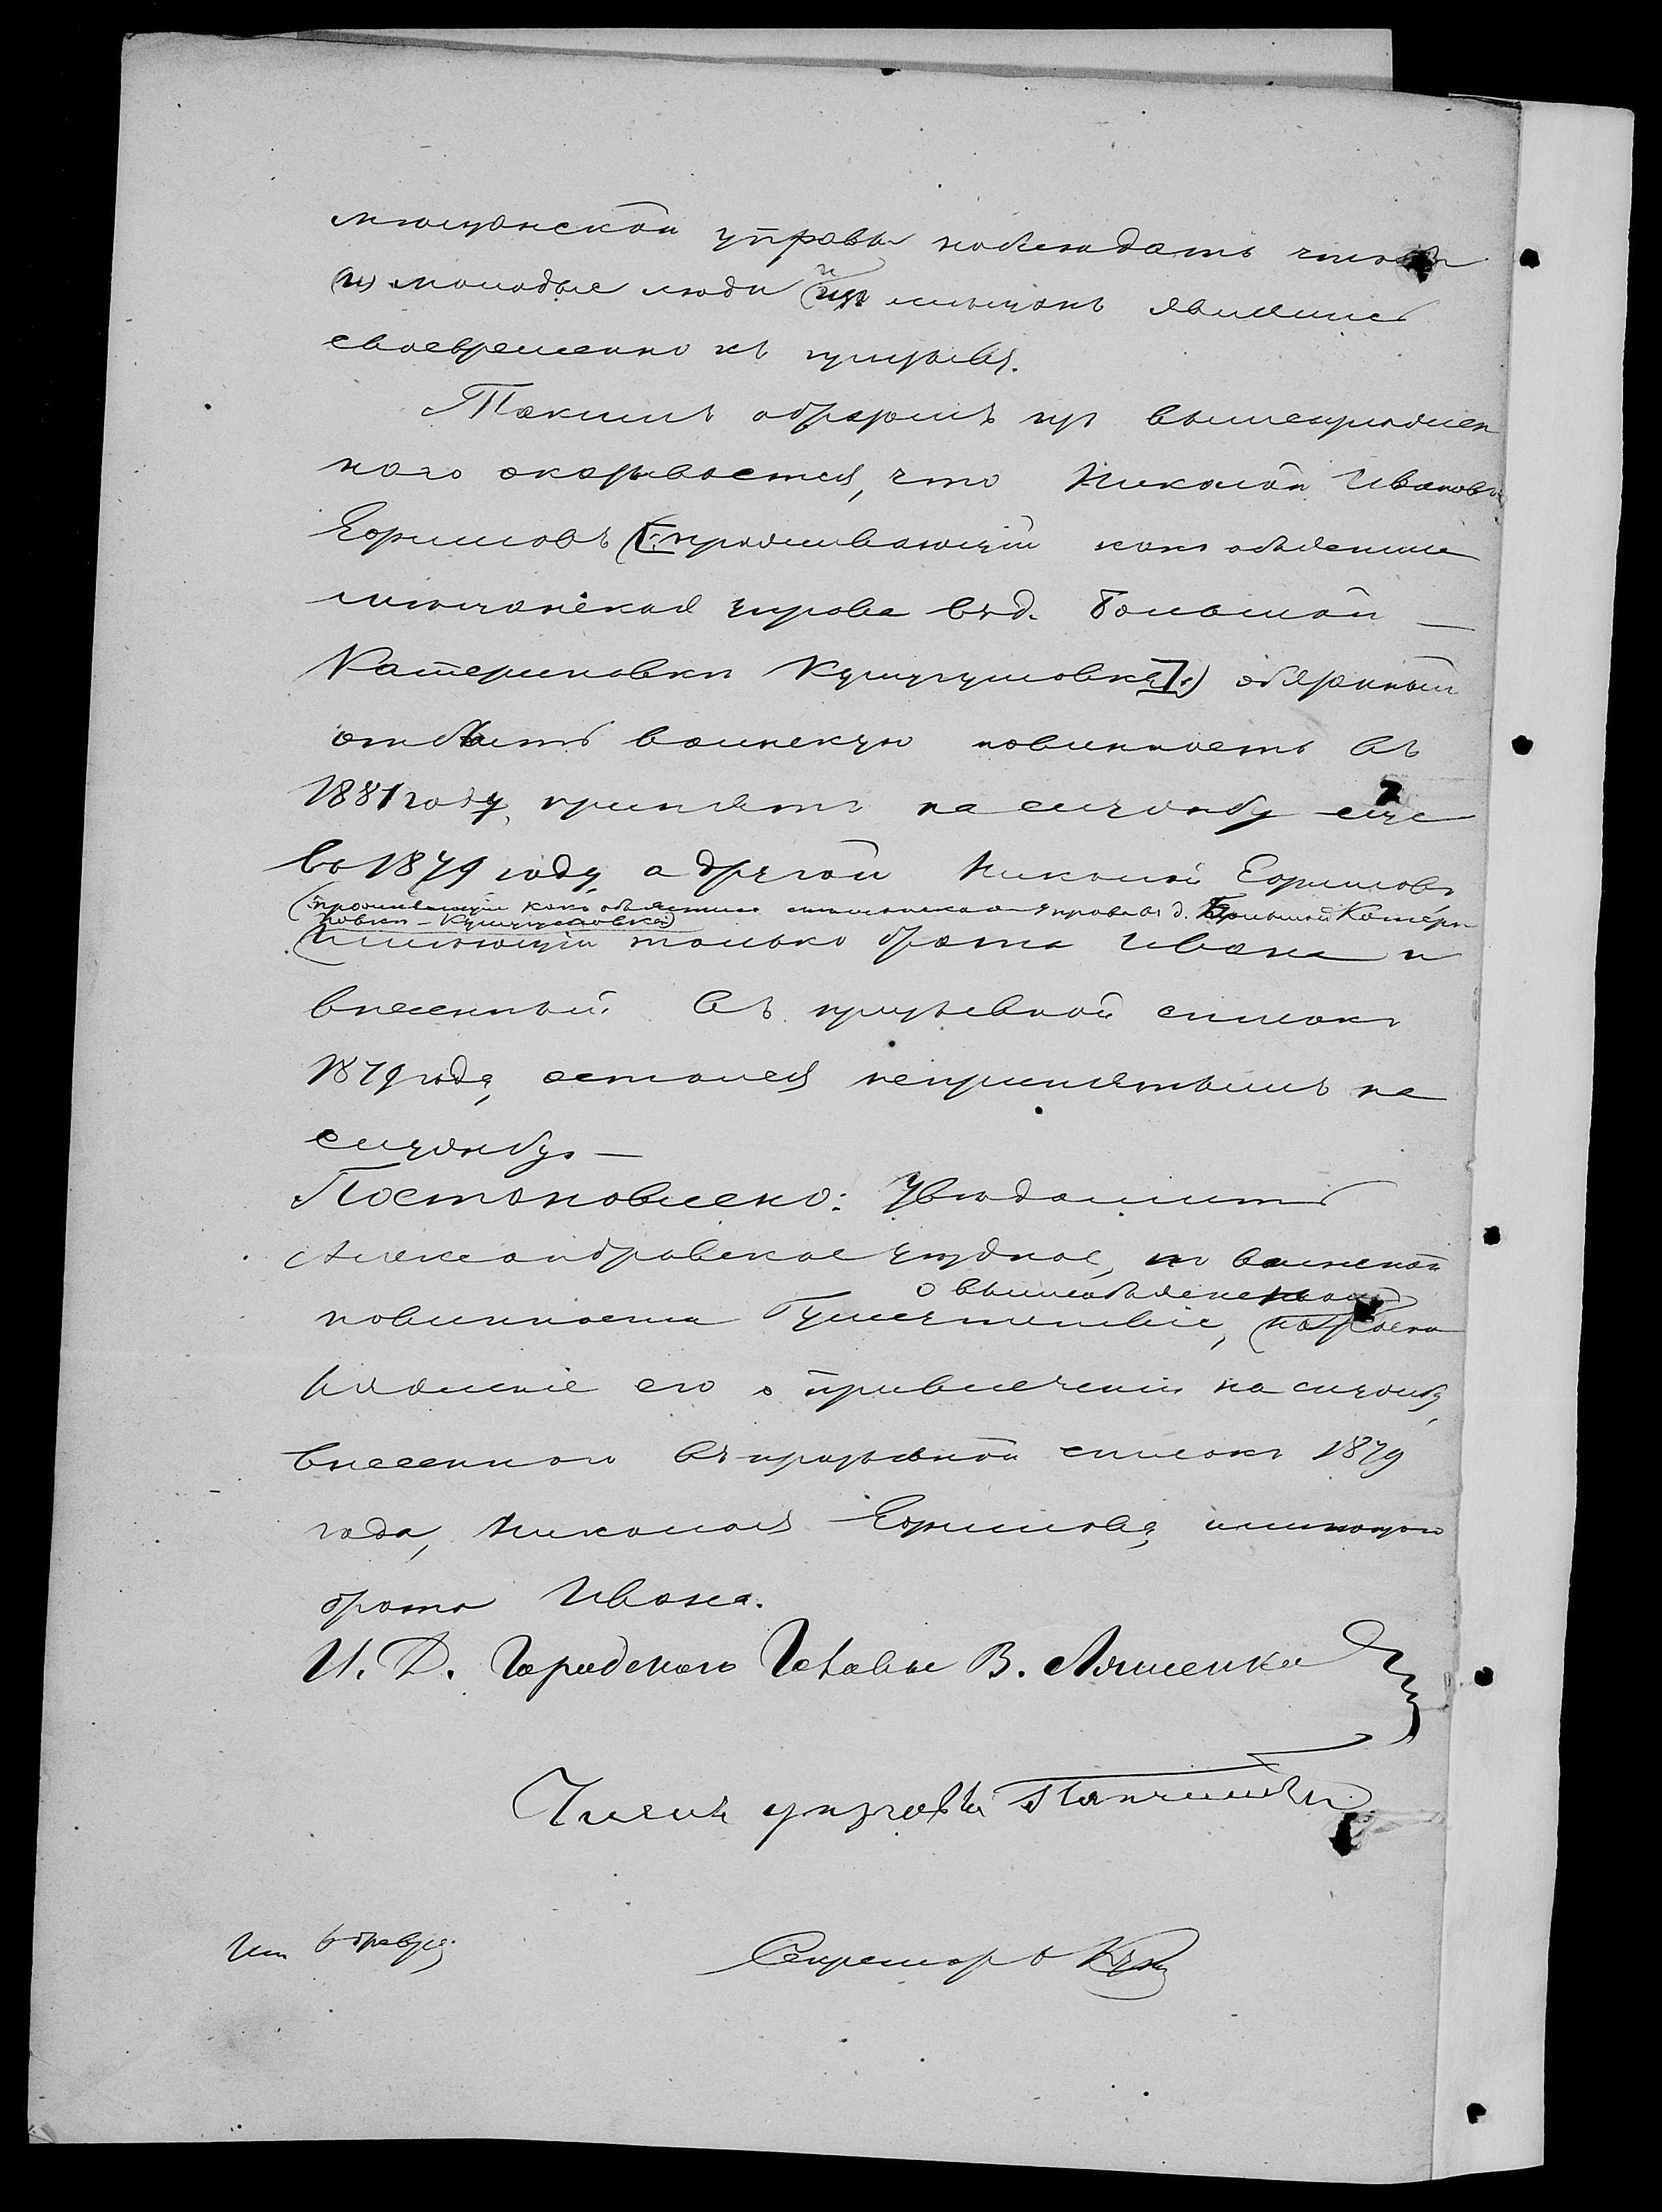 мѣщанской управы наблюдать чтобы
(и) молодые люди изъ мѣщанъ явились
своевременно къ призыву.
Такимъ образомъ изъ вышеприложен
наго оказывается, что Николай Иванов
Ефимовъ (проживающій какъ объяснила
мѣщанская управа въ д. Большой —
Катериновки Кушугумовкѣ) обязанный
отбыть воинскую повинность въ
1881 году, принятъ на службу еще
въ 1879 году, а другой Николай Ефимовъ
(проживающій какъ объяснила мѣщанская управа въ д. Большой Катери
новки – Кушугумовкѣ)
имѣющій только брата Ивана и
внесенный въ призывной списокъ
1879 года, остался непринятымъ на
службу. —
Постановлено: Увѣдомить
Александровское уѣздное, по воинской
о вышеобъясненномъ
повинности Присутствіе, на распо
ряженіе его о привлеченіи на службу,
внесеннаго въ призывной списокъ 1879
года, Николая Ефимова, имѣющаго
брата Ивана.
И. Д. Городского Головы В. Ляшенко
Членъ управы
Секретарь